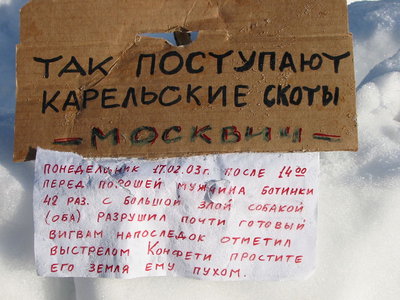 ТАК ПОСТУПАЮТ
КАРЕЛЬСКИЕ СКОТЫ
-МОСКВИЧ-
ПОНЕДЕЛЬНИК 17.02.03г. ПОСЛЕ 14 00
ПЕРЕД ПОРОШЕЙ МУЖЧИНА БОТИНКИ
42 РАЗ. С БОЛЬШОЙ ЗЛОЙ СОБАКОЙ
(ОБА) РАЗРУШИЛ ПОЧТИ ГОТОВЫЙ
ВИГВАМ НАПОСЛЕДОК ОТМЕТИЛ
ВЫСТРЕЛОМ КОНФЕТИ ПРОСТИТЕ
ЕГО ЗЕМЛЯ ЕМУ ПУХОМ.